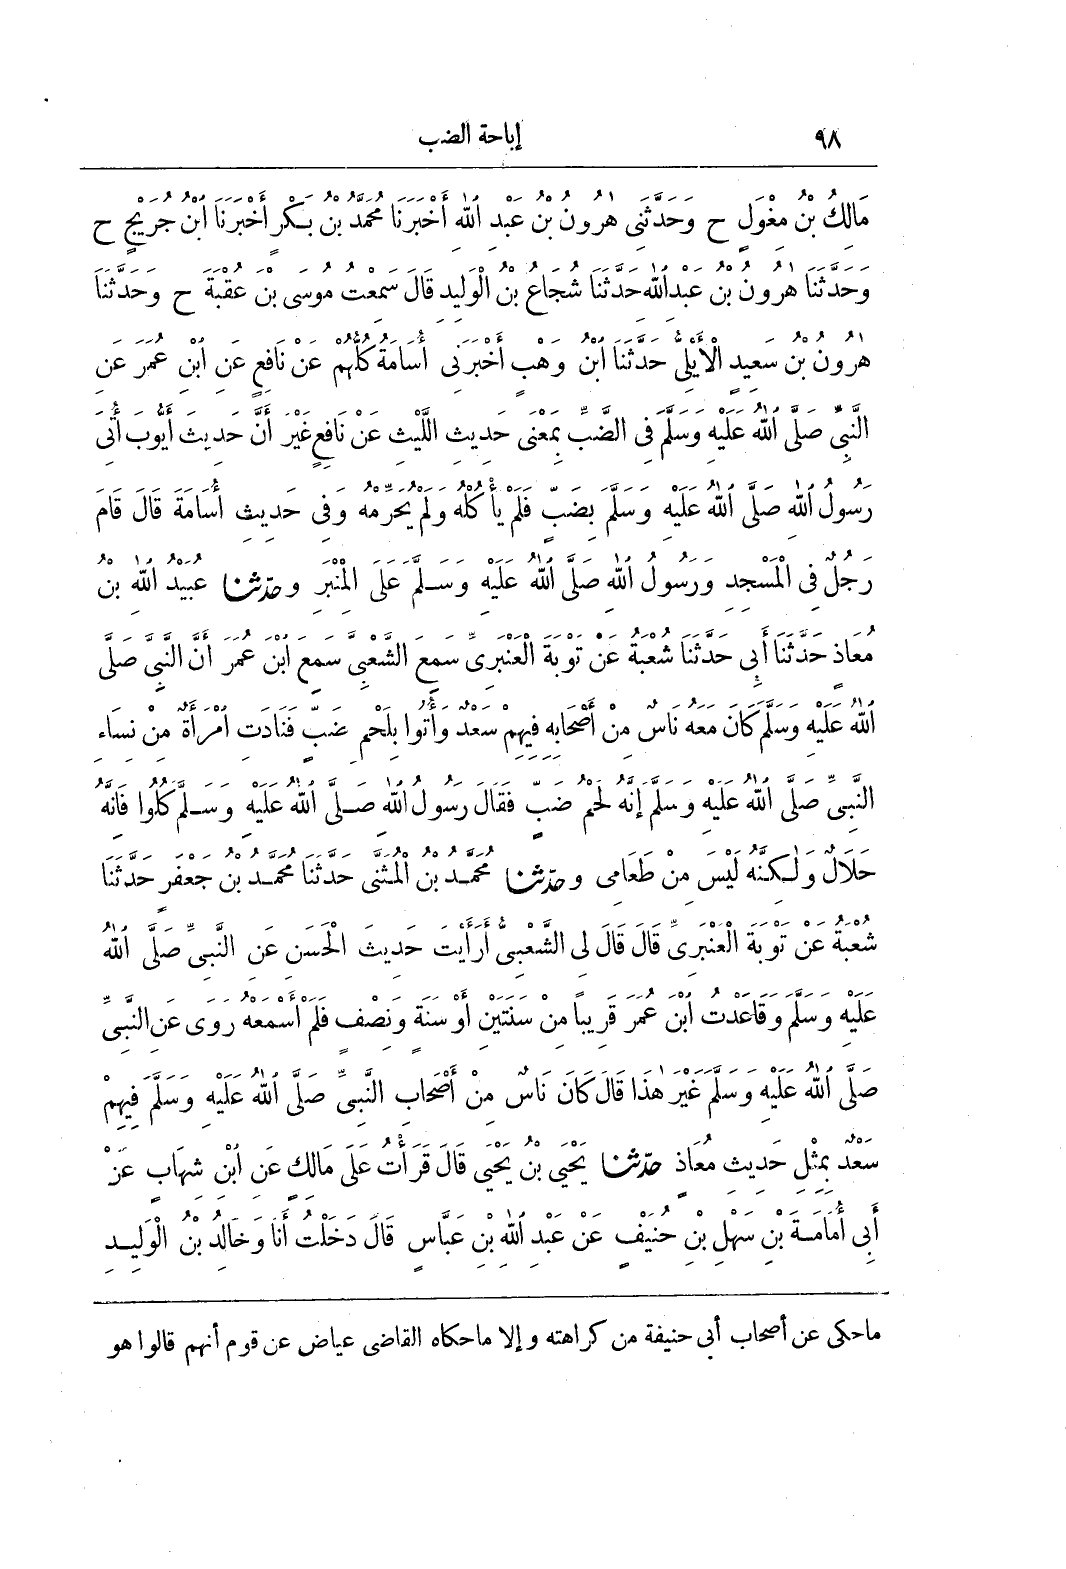 ٩٨ إباحة الضب
مَالِكُ بْنُ مِغْوَلٍ ح وَحَدَّثَنِى هٰرُونُ بْنُ عَبْدِ ٱللّٰهِ أَخْبَرَنَا مُحَمَّدُ بْنُ بَكْرٍ أَخْبَرَنَا ٱبْنُ جُرَيْجٍ ح
وَحَدَّثَنَا هٰرُونُ بْنُ عَبْدِ ٱللّٰهِ حَدَّثَنَا شُجَاعُ بْنُ الْوَلِيدِ قَالَ سَمِعْتُ مُوسَى بْنَ عُقْبَةَ ح وَحَدَّثَنَا
هٰرُونُ بْنُ سَعِيدٍ الْأَيْلِىُّ حَدَّثَنَا ٱبْنُ وَهْبٍ أَخْبَرَنِى أُسَامَةُ كُلُّهُمْ عَنْ نَافِعٍ عَنِ ٱبْنِ عُمَرَ عَنِ
النَّبِىِّ صَلَّى ٱللّٰهُ عَلَيْهِ وَسَلَّمَ فِى الضَّبِّ بِمَعْنَى حَدِيثِ اللَّيْثِ عَنْ نَافِعٍ غَيْرَ أَنَّ حَدِيثَ أَيُّوبَ أُتِىَ
رَسُولُ ٱللّٰهِ صَلَّى ٱللّٰهُ عَلَيْهِ وَسَلَّمَ بِضَبٍّ فَلَمْ يَأْكُلْهُ وَلَمْ يُحَرِّمْهُ وَفِى حَدِيثِ أُسَامَةَ قَالَ قَامَ
رَجُلٌ فِى الْمَسْجِدِ وَرَسُولُ ٱللّٰهِ صَلَّى ٱللّٰهُ عَلَيْهِ وَسَلَّمَ عَلَى الْمِنْبَرِ و حَدَّثَنَا عُبَيْدُ ٱللّٰهِ بْنُ
مُعَاذٍ حَدَّثَنَا أَبِى حَدَّثَنَا شُعْبَةُ عَنْ تَوْبَةَ الْعَنْبَرِىِّ سَمِعَ الشَّعْبِىَّ سَمِعَ ٱبْنَ عُمَرَ أَنَّ النَّبِىَّ صَلَّى
ٱللّٰهُ عَلَيْهِ وَسَلَّمَ كَانَ مَعَهُ نَاسٌ مِنْ أَصْحَابِهِ فِيهِمْ سَعْدٌ وَأُتُوا بِلَحْمِ ضَبٍّ فَنَادَتِ ٱمْرَأَةٌ مِنْ نِسَاءِ
النَّبِىِّ صَلَّى ٱللّٰهُ عَلَيْهِ وَسَلَّمَ إِنَّهُ لَحْمُ ضَبٍّ فَقَالَ رَسُولُ ٱللّٰهِ صَلَّى ٱللّٰهُ عَلَيْهِ وَسَلَّمَ كُلُوا فَإِنَّهُ
حَلَالٌ وَلٰكِنَّهُ لَيْسَ مِنْ طَعَامِى و حَدَّثَنَا مُحَمَّدُ بْنُ الْمُثَنَّى حَدَّثَنَا مُحَمَّدُ بْنُ جَعْفَرٍ حَدَّثَنَا
شُعْبَةُ عَنْ تَوْبَةَ الْعَنْبَرِىِّ قَالَ قَالَ لِى الشَّعْبِىُّ أَرَأَيْتَ حَدِيثَ الْحَسَنِ عَنِ النَّبِىِّ صَلَّى ٱللّٰهُ
عَلَيْهِ وَسَلَّمَ وَقَاعَدْتُ ٱبْنَ عُمَرَ قَرِيبًا مِنْ سَنَتَيْنِ أَوْ سَنَةٍ وَنِصْفٍ فَلَمْ أَسْمَعْهُ رَوَى عَنِ النَّبِىِّ
صَلَّى ٱللّٰهُ عَلَيْهِ وَسَلَّمَ غَيْرَ هٰذَا قَالَ كَانَ نَاسٌ مِنْ أَصْحَابِ النَّبِىِّ صَلَّى ٱللّٰهُ عَلَيْهِ وَسَلَّمَ فِيهِمْ
سَعْدٌ بِمِثْلِ حَدِيثِ مُعَاذٍ حَدَّثَنَا يَحْيَى بْنُ يَحْيَى قَالَ قَرَأْتُ عَلَى مَالِكٍ عَنِ ٱبْنِ شِهَابٍ عَنْ
أَبِى أُمَامَةَ بْنِ سَهْلِ بْنِ حُنَيْفٍ عَنْ عَبْدِ ٱللّٰهِ بْنِ عَبَّاسٍ قَالَ دَخَلْتُ أَنَا وَخَالِدُ بْنُ الْوَلِيدِ
ماحكى عن أصحاب أبى حنيفة من كراهته و إلا ماحكاه القاضى عياض عن قوم أنهم قالوا هو